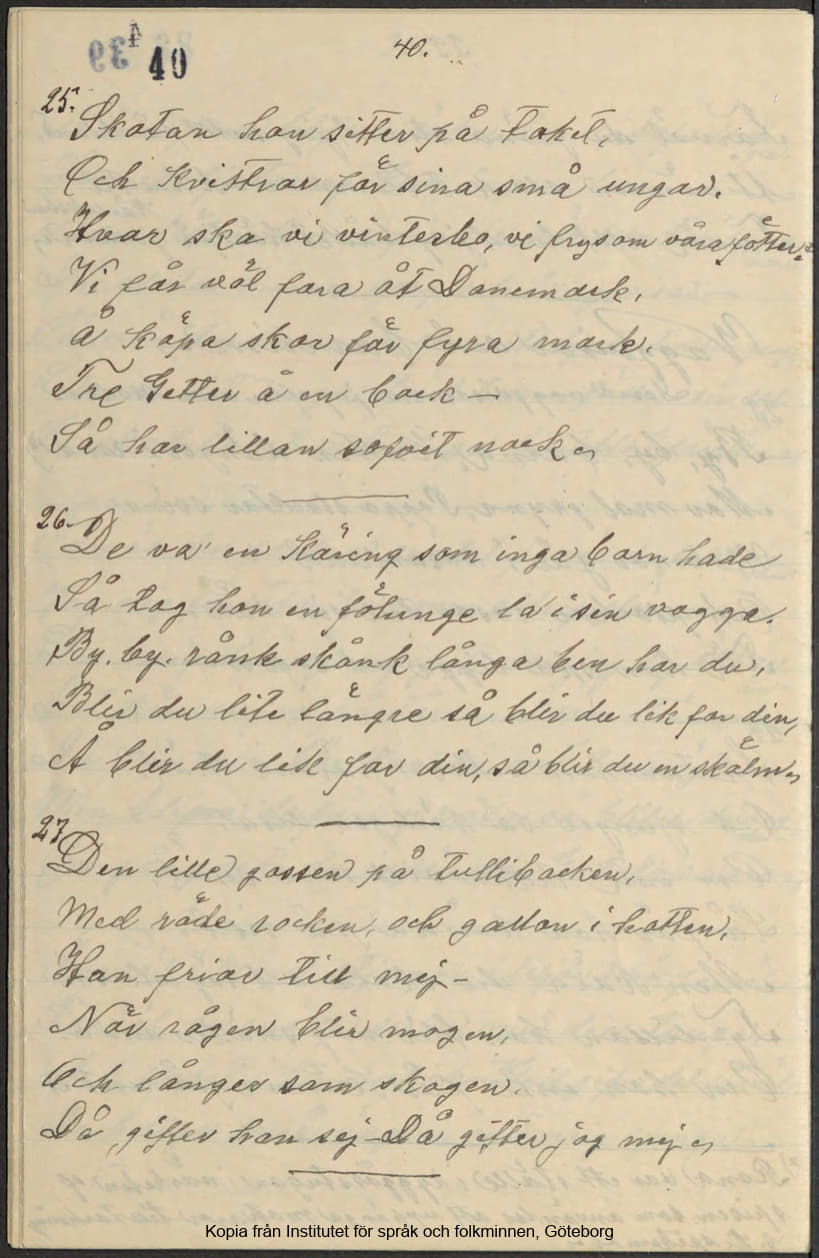 40.
39 4 40
25.
Skatan hon sitter på taket,
Och kvittrar för sina små ungar.
Hvar ska vi vinterbo, vi frys om våra fötter.
Vi får väl fara åt Danemark,
å köpa skor för fyra mark.
Tre Getter å en bock —
Så har lillan sofvit nock.
26.
De va' en käring som inga barn hade
Så tog hon en fölunge la' i sin vagga.
By, by. rånk skånk långa ben har du,
Blir du lite längre så blir du lik far din,
Å blir du lik far din, så blir du en skälm.
27
Den lille gossen på tullibacken,
Med röde rocken, och gallon i hatten,
Han friar till mig —
När rågen blir mogen,
Och långer som skogen.
Då gifter han sej — Då gifter jag mej.
Kopia från Institutet för språk och folkminnen, Göteborg